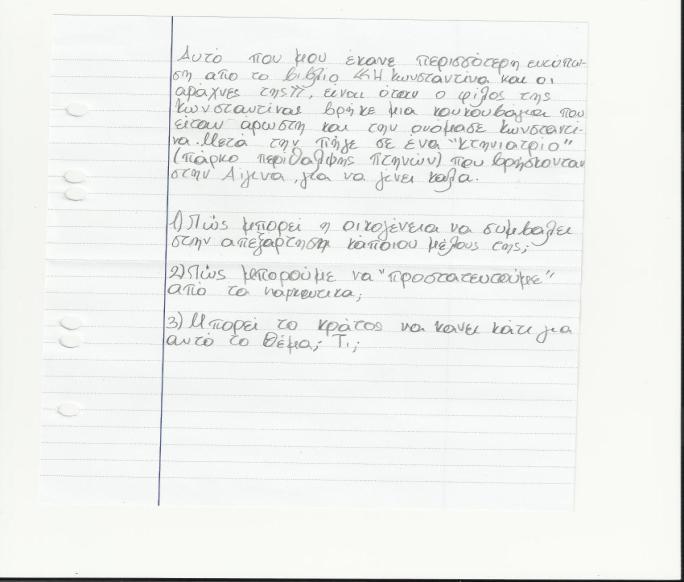 Αυτό που μου έκανε περισσότερη εντύπω-
ση από το βιβλίο "Η Κωνσταντίνα και οι
αράχνες της", είναι όταν ο φίλος της
Κωνσταντίνας βρήκε μια κουκουβάγια που
είταν άρωστη και την ονόμασε Κωνσταντί-
να. Μετά την πήγε σε ένα "κτηνιατρίο"
(πάρκο περίθαλψης πτηνών) που βρήσκονταν
στην Αίγινα, για να γίνει καλά.
1) Πώς μπορεί η οικογένεια να συμβάλει
στην απεξάρτηση κάποιου μέλους της;
2) Πώς μπορούμε να "προστατευτούμε"
από τα ναρκωτικά;
3) Μπορεί το κράτος να κάνει κάτι για
αυτό το θέμα; Τι;